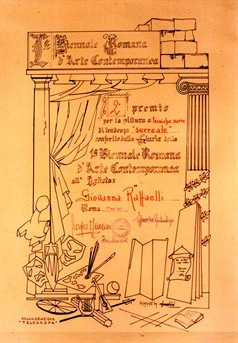 Iª Biennale Romana
d'Arte Contemporanea
2º premio
per la pittura a
di tendenza "surreale"
conferito dalla Giuria della
1ª Biennale Romana
d'Arte Contemporanea
all'Artista:
Giovanna Raffaelli
Roma
ORGANIZZAZIONE
"TELEUROPA"